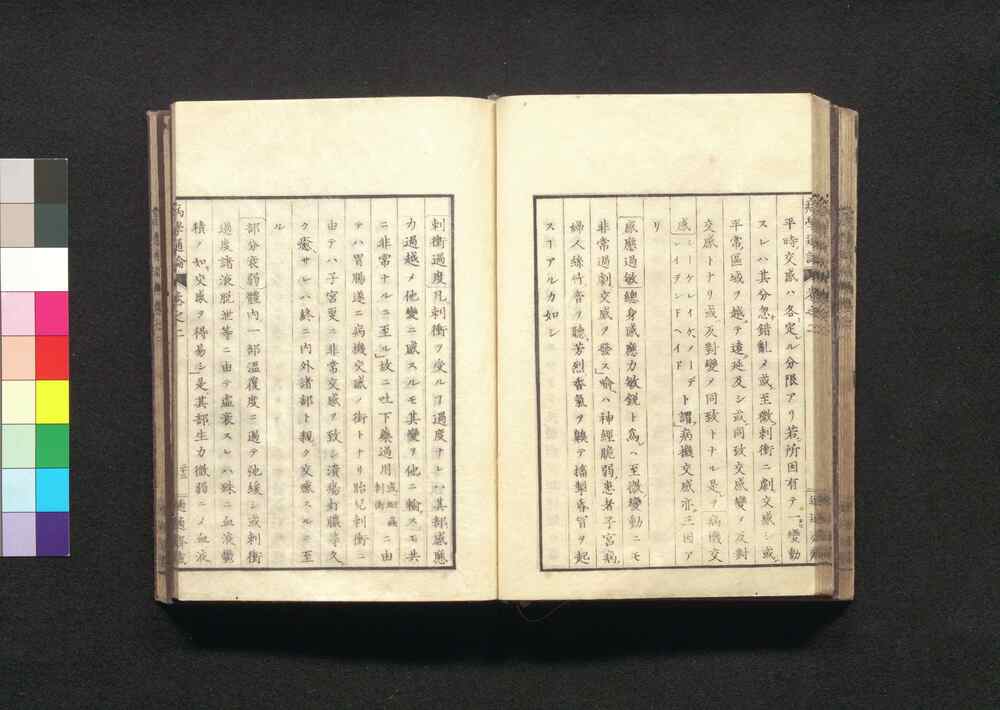 平時交感ハ各定ル分限アリ若所因有テ一變動
スレハ其分忽錯亂メ或至微刺衝ニ劇交感シ或
平常區域ヲ越テ遠延及シ或同致交感變メ反對
交感トナリ或反對變メ同致トナル是ヲ病機交
感シーケレイケ、メーデ
レイデンドヘイドト謂病機交感亦三因ア
リ
感應過敏總身感應力敏鋭ト為ハ至微變動ニモ
非常過劇交感ヲ發ス喻ハ神經脆弱患者子宮病
婦人絲竹音ヲ聽芳烈香氣ヲ齅テ搐掣昏冒ヲ起
スヿアルカ如シ
刺衝過度凡刺衝ヲ受ルヿ過度ナレハ其部感應
力過越メ他變ニ感スルモ其變ヲ他ニ輸スモ共
ニ非常ナルニ至ル故ニ吐下藥過用或蚘蟲
刺衝ニ由
テハ胃腸遂ニ病機交感ノ衝トナリ胎兒刺衝ニ
由テハ子宮亟ニ非常交感ヲ致シ潰瘍打膿等久
ク癒サレハ終ニ内外諸部ト親ク交感スルニ至
ル
部分衰弱體內一部溫復度ニ過テ弛緩シ或刺衝
過度諸液脱泄等ニ由テ虛衰スレハ殊ニ血液鬱
積ノ如交感ヲ得易シ是其部生力微弱ニメ血液
病學通論 卷之二